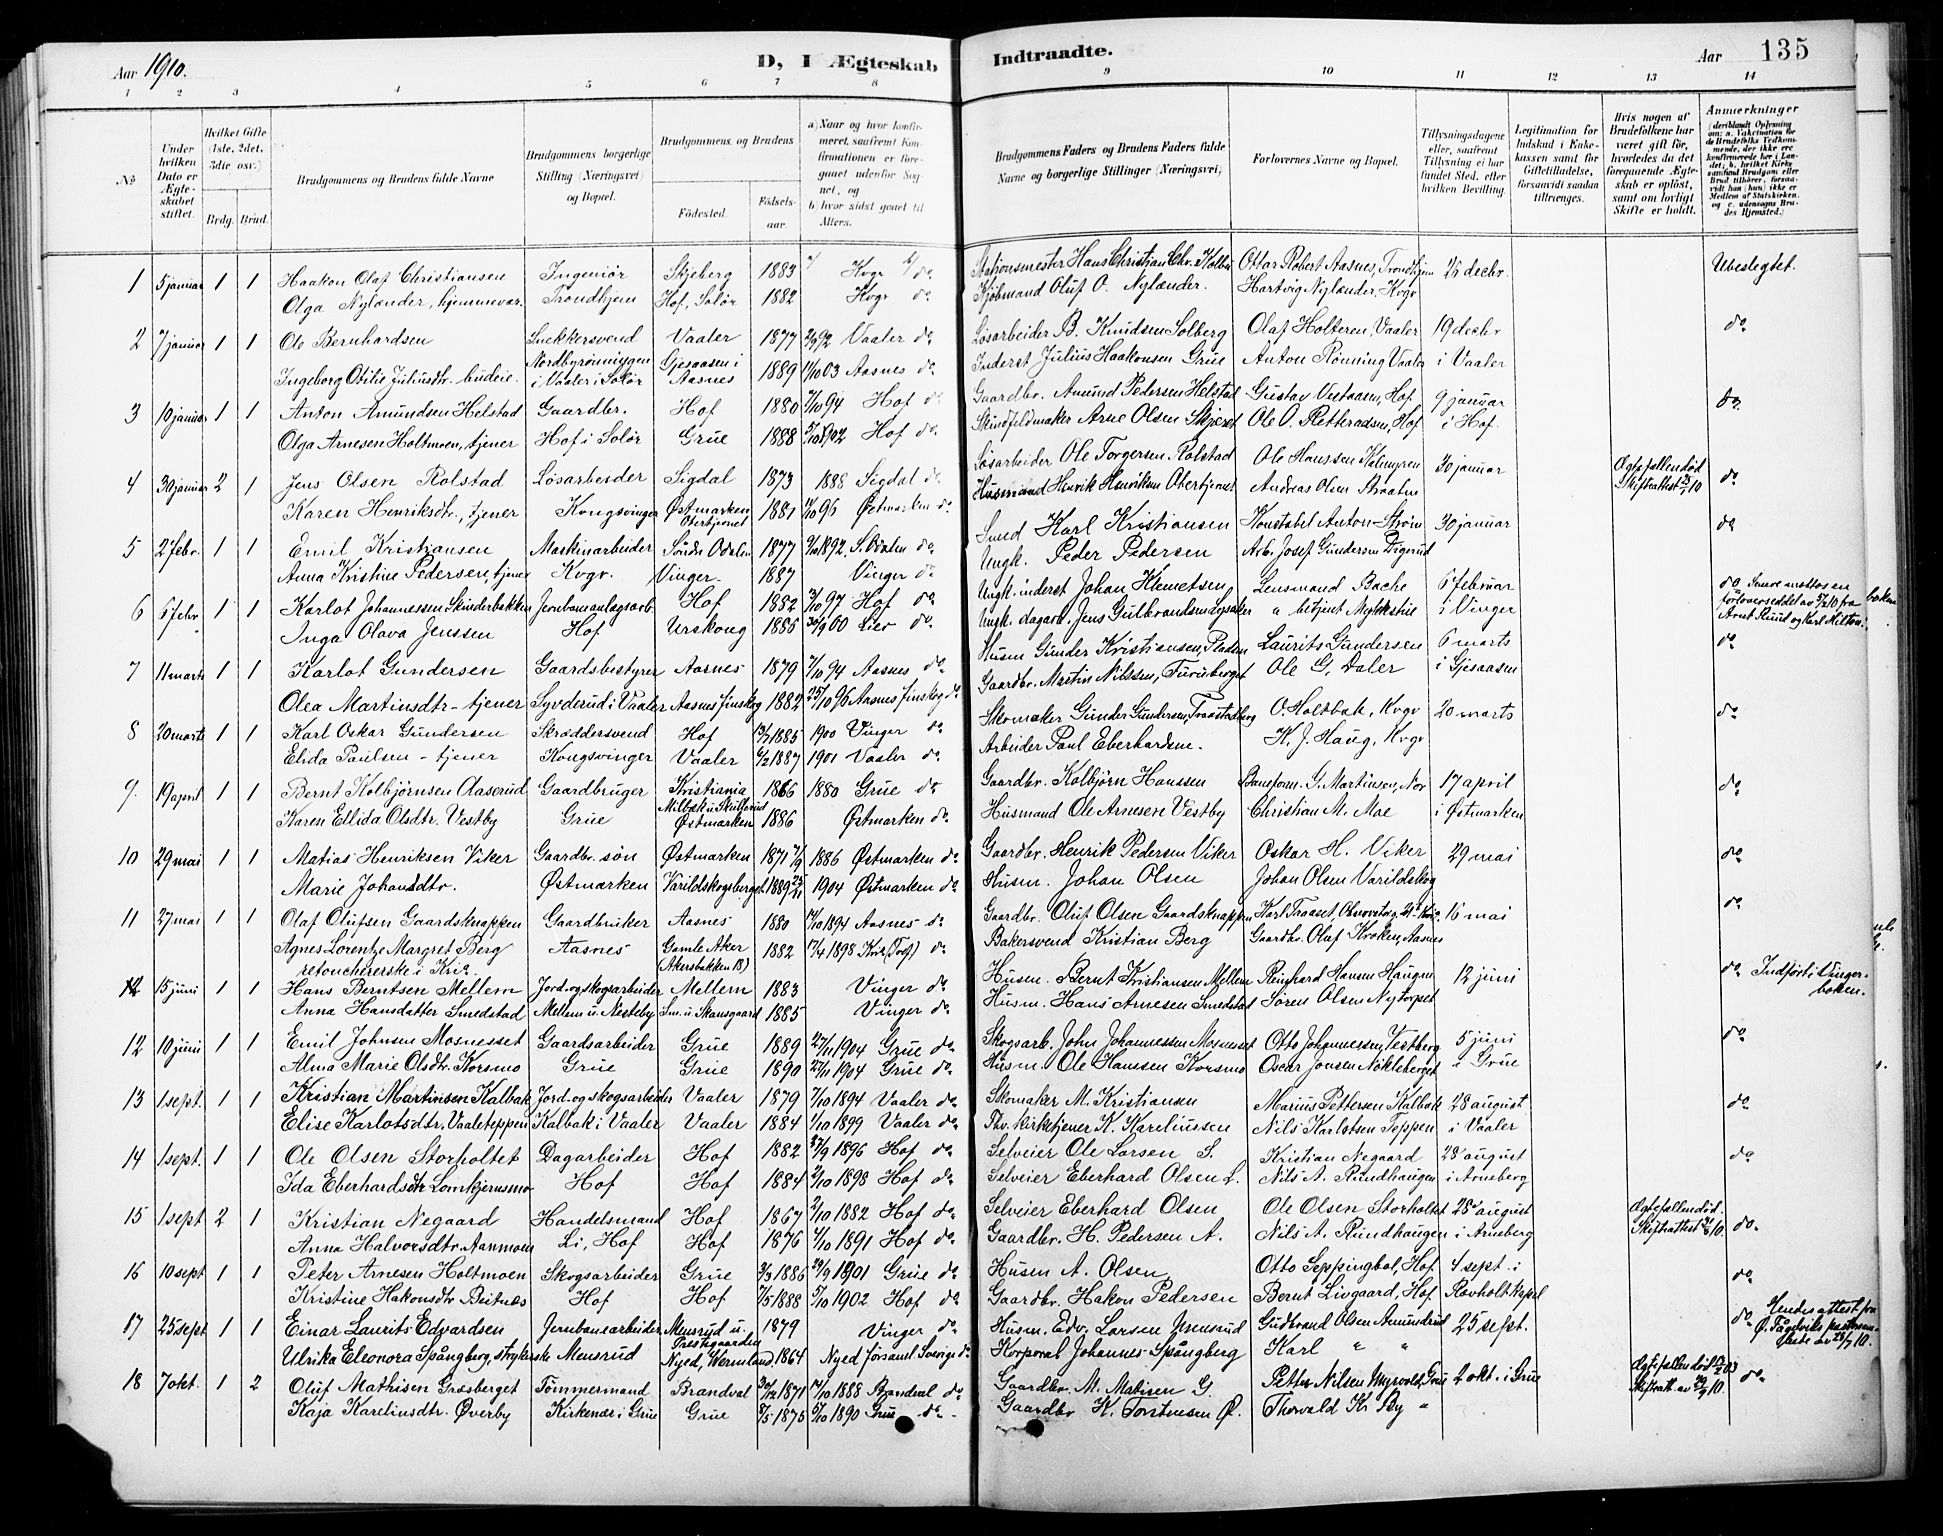 Aar 1910.
D, I Ægteskab Indtraadte.
Aar 135
1 2 3 4 5 6 7 8 9 10 11 12 13 14
No
Under hvilken Dato er Ægteskabet stiftet.
Hvilket Gifte (1ste, 2det, 3die osv.) Brdg. Brud.
Brudgommens og Brudens fulde Navne
Brudgommens borgerlige Stilling (Næringsvei) og Bopæl.
Brudgommens og Brudens Fødested. Fødselsaar.
a) Naar og hvor konfirmeret, saafremt Konfirmationen er foregaaet udenfor Sognet, og b) hvor sidst gaaet til Alters.
Brudgommens Faders og Brudens Faders fulde Navne og borgerlige Stillinger (Næringsvei)
Forlovernes Navne og Bopæl.
Tillysningsdagene eller, saafremt Tillysning ei har fundet Sted, efter hvilken Bevilling.
Legitimation for Indskud i Enkekassen samt for Giftetilladelse, forsaavidt saadan tiltrænges.
Hvis nogen af Brudefolkene har været gift før, hvorledes da det foregaaende Ægteskab er opløst, samt om lovligt Skifte er holdt.
Anmerkninger
1 5 januar 1 1 Haakon Olaf Christiansen Ingeniør Skjeberg 1883 Kvgr do Stationsmester Hans Christian Chr. Holbu Ottar Robert Aasnes, Trondhjem 26 decbr. Ubeslegtet.
Olga Nylænder, hjemmevær. Trondhjem Hof, Solør 1882 Kvgr do Kjøbmand Oluf O. Nylænder. Hartvig Nylænder, Kvgr
2 7 januar 1 1 Ole Bernhardsen Snekkersvend Vaaler 1877 92 Vaaler do Løsarbeider B. Knudsen Solberg Olaf Holteren, Vaaler 19 decbr do
Ingeborg Otilie Juliusdtr. budeie. Nordbyrønningen i Vaaler i Solør Gjesaasen i Aasnes 1889 03 Aasnes do Inderst Julius Haakonsen Grue Anton Rønning Vaaler i Vaaler
3 10 januar 1 1 Anton Amundsen Helstad Gaardbr. Hof 1880 94 Hof do Gaardbr. Amund Pedersen Helstad Gustav Vestaasen, Hof 9 januar do
Olga Arnesen Holtmoen, tjener Hof i Solør Grue 1888 1902 Hof do Skindfeldmaker Arne Olsen Skjæret Ole O. Retteraasen, Hof i Hof.
4 30 januar 2 1 Jens Olsen Rolstad Løsarbeider Sigdal 1873 1888 Sigdal do Løsarbeider Ole Torgersen Rolstad Ole Hanssen Holmyren 30 januar Egtef. fallen død Skifteattest 10 do
Karen Henriksdtr., tjener Kongsvinger Østmarken Obertjenet 1881 96 Østmarken do Husmand Henrik Henriksen Obertjenet Andreas Olsen Straatn
5 2 febr. 1 1 Emil Kristiansen Maskinarbeider Søndr. Odalen 1877 1892 S. Odalen do Smed Karl Kristiansen Konstabel Anton Strøm 30 januar do
Anna Kristine Pedersen, tjener Kvgr. Vinger. 1887 Vinger do Ungk. Peder Pedersen Arb. Josef Gundersen Digerud
6 6 febr. 1 1 Karlot Johannessen Skinderbakken Jernbaneanlagsarb. Hof 1882 97 Hof do Ungk. inderst Johan Klemetsen Lensmand Bache 6 februar do
Inga Olava Jenssen Hof Urskoug 1886 Lier do Ungk. dagarb. Jens Gulbrandsen " betjent Myhrstue i Vinger forloverseddel av 10 fra Arnt Ruud og Karl Hilton.
7 11 marts 1 1 Karlot Gundersen Gaardsbestyrer Aasnes 1879 94 Aasnes do Husm Gunder Kristiansen, Pladsen Laurits Gundersen 6 marts do
Olea Martinsdtr - tjener Syvderud i Vaaler Aasnes finskog 1882 96 Aasnes finskog do Gaardbr. Martin Nilssen, Furuberget Ole G. Daler i Gjesaasen
8 20 marts 1 1 Karl Oskar Gundersen Skræddersvend Hof 1885 1900 Vinger do Skomaker Gunder Gundersen, Traastadberg O. Holtbak, Kvgr 20 marts do
Elida Paulsen - tjener Kongsvinger Vaaler 6/2 1887 1901 Vaaler do Arbeider Paul Eberhardsen. K. J. Haug, Kvgr
9. 19 april 1 1 Bernt Kolbjørnsen Aaserud Gaardbruger Kristiania 1866 1880 Grue do Gaardbr. Kolbjørn Hanssen Baneform. G. Martinsen, Nor 17 april do
Karen Ellida Olsdtr. Vestby Grue Østmarken 1886 Østmarken do Husmand Ole Arnesen Vestby Christian M. Moe i Østmarken
10 29 mai 1 1 Matias Henriksen Viker Gaardbr. søn Østmarken 1871 1886 Østmarken do Gaardbr. Henrik Pedersen Viker Oskar H. Viker 29 mai do
Marie Johansdtr. Østmarken Varildskogsberget 1889 1904 Østmarken do Husm. Johan Olsen Johan Olsen Varildskog
11 27 mai 1 1 Olaf Olufsen Gaardsknappen Gaardbruker Aasnes 1880 1894 Aasnes do Gaardbr. Oluf Olsen Gaardsknappen Karl Traaset, 16 mai do
Agnes Lorentze Margret Berg retouchererske i Kria. Aasnes Gamle Aker (Akersbakken 18) 1882 1898 do Bakersvend Kristian Berg Gaardbr. Olaf Kroken, Aasnes
12 15 juni 1 1 Hans Berntsen Mellem Jord. og skogsarbeider Mellem 1883 Vinger do Husm. Bernt Kristiansen Mellem Reinhard Hansen Haugen 12 juni do Indført i Vinger-boken.
Anna Hansdatter Smedstad Mellem u. Nesteby Sm. u. Skansgaard 1885 Vinger do Husm. Hans Arnesen Smedstad Søren Olsen Nytorpet
12 10 juni 1 1 Emil Johnsen Mosnesset Gaardsarbeider Grue 1889 27/11 1904 Grue do Skogsarb. John Johannessen Mosnesset Otto Johannessen, Vestberg 5 juni do
Alma Marie Olsdtr. Korsmo Grue Grue 1890 27/11 1904 Grue do Husm. Ole Hanssen Korsmo Oscar Jonsen Nøkleberget i Grue
13 1 sept. 1 1 Kristian Martinsen Kalbak Jord. og skogsarbeider Vaaler 1879 1894 Vaaler do Skomaker M. Kristiansen Marius Pettersen Kalbak 28 august do
Elise Karlotsdtr. Vaaleteppen Kalbak i Vaaler Vaaler 1884 1/10 1899 Vaaler do Fhv. kirketjener K. Kareliussen Nils Karlotsen Teppen i Vaaler
14 1 sept. 1 1 Ole Olsen Storholtet Dagarbeider Hof 1882 27/9 1896 Hof do Selveier Ole Larsen S. Kristian Negaard 28 august do
Ida Eberhardsdtr Lomkjernsmo Hof Hof 1884 2/10 1898 Hof do Selveier Eberhard Olsen L. Nils A. Rundhaugen i Arneberg
15 1 sept 2 1 Kristian Negaard Handelsmand Hof 1867 1882 Hof do Selveier Eberhard Olsen Ole Olsen Storholtet 28 august Egtefallen død. Skifteattest 10. do
Anna Halvorsdtr. Aanmoen Li, Hof Hof 1876 1891 Hof do Gaardbr. H. Pedersen A. Nils A. Rundhaugen i Arneberg
16 10 sept 1 1 Peter Arnesen Holtmoen Skogsarbeider Grue 3/3 1886 29/9 1901 Grue do Husm A. Olsen Otto Seppingbøl, Hof 4 sept. i do
Kristine Hakonsdtr Beitnes Hof Hof 7/5 1888 5/10 1902 Hof do Gaardbr. Hakon Pedersen Bernt Livgaard, Hof Rovholtkapel
17 25 sept 1 1 Einar Laurits Edvardsen Jernbanearbeider Mensrud u. Prestegaarden 1879 Vinger do Husm. Edv. Larsen Mensrud Gudbrand Olsen Amundrud 25 sept. do Hendes attest fra
Ulrika Eleonora Spångberg, strykerske Mensrud Nyed, Wermland 1864 Nyed førsaml Sverige do Korporal Johannes Spångberg Karl " "
18 7 okt. 1 2 Oluf Mathisen Græsberget Tømmermand Brandval 1871 1888 Brandval do Gaardbr. M. Matisen G. Petter Nilsen Myrvold, Grue 2 okt. i Grue Egtef. fallen død 03 Skifteatt. av 10. do
Kaja Karelinsdtr. Øverby Kirkenær i Grue Grue 7/5 1875 1890 Grue do Gaardbr K. Torstensen Ø. Thorvald K. By "